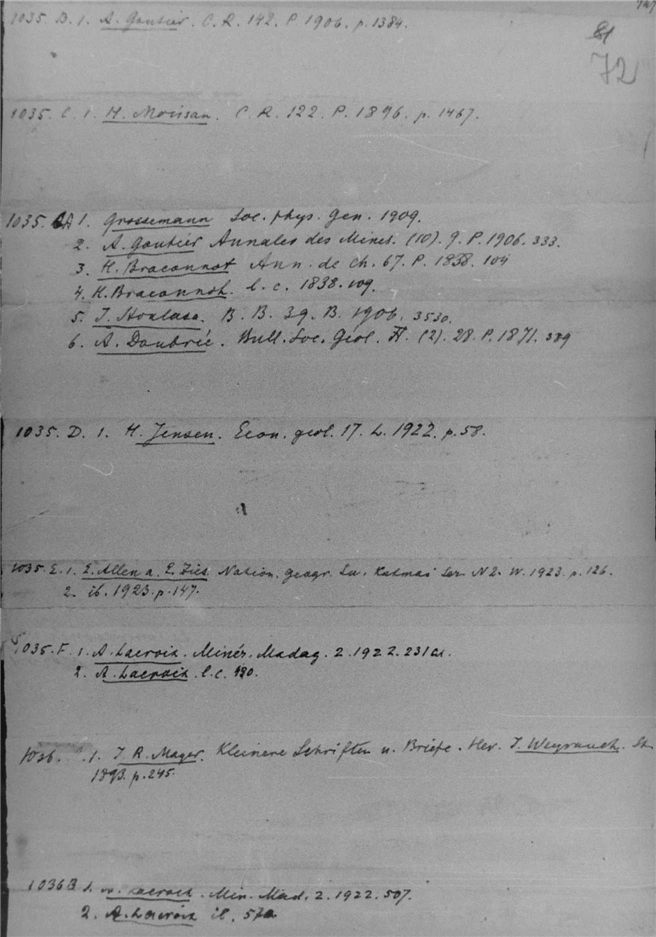 72
1035. B. 1. A. Gautier. C. R. 142. P. 1906. p. 1384.
1035. C. 1. H. Moissan. C. R. 122. P. 1896. p. 1467.
1035. 1. Grossemann Soc. phys. Gen. 1909.
2. A. Gautier Annales des Mines. (10). 9. P. 1906. 333.
3. H. Braconnot Ann. de Ch. 67. P. 1838. 104
4. H. Braconnot. l. c. 1838. 109.
5. B. B. 39. B. 1906. 3530.
6. A. Daubrée. Bull. Soc. Géol. (2). 28. P. 1871. 389
1035. D. 1. H. Jensen. Econ. geol. 17. L. 1922. p. 58.
1035. E. 1. E. Allen a. E. Zies. Nation. geogr. Katmai Ser. N 2. W. 1923. p. 126.
2. ib. 1923. p. 147.
1035. F. 1. A. Lacroix. Minér. Madag. 2. 1922. 231
2. A. Lacroix. l. c.
1036. 1. J. R. Mayer. Kleinere Schriften u. Briefe. Her. J. Weyrauch. St.
1893. p. 245.
1036 1. A. Lacroix. Min. Mad. 2. 1922. 507.
2. A. Lacroix ib.